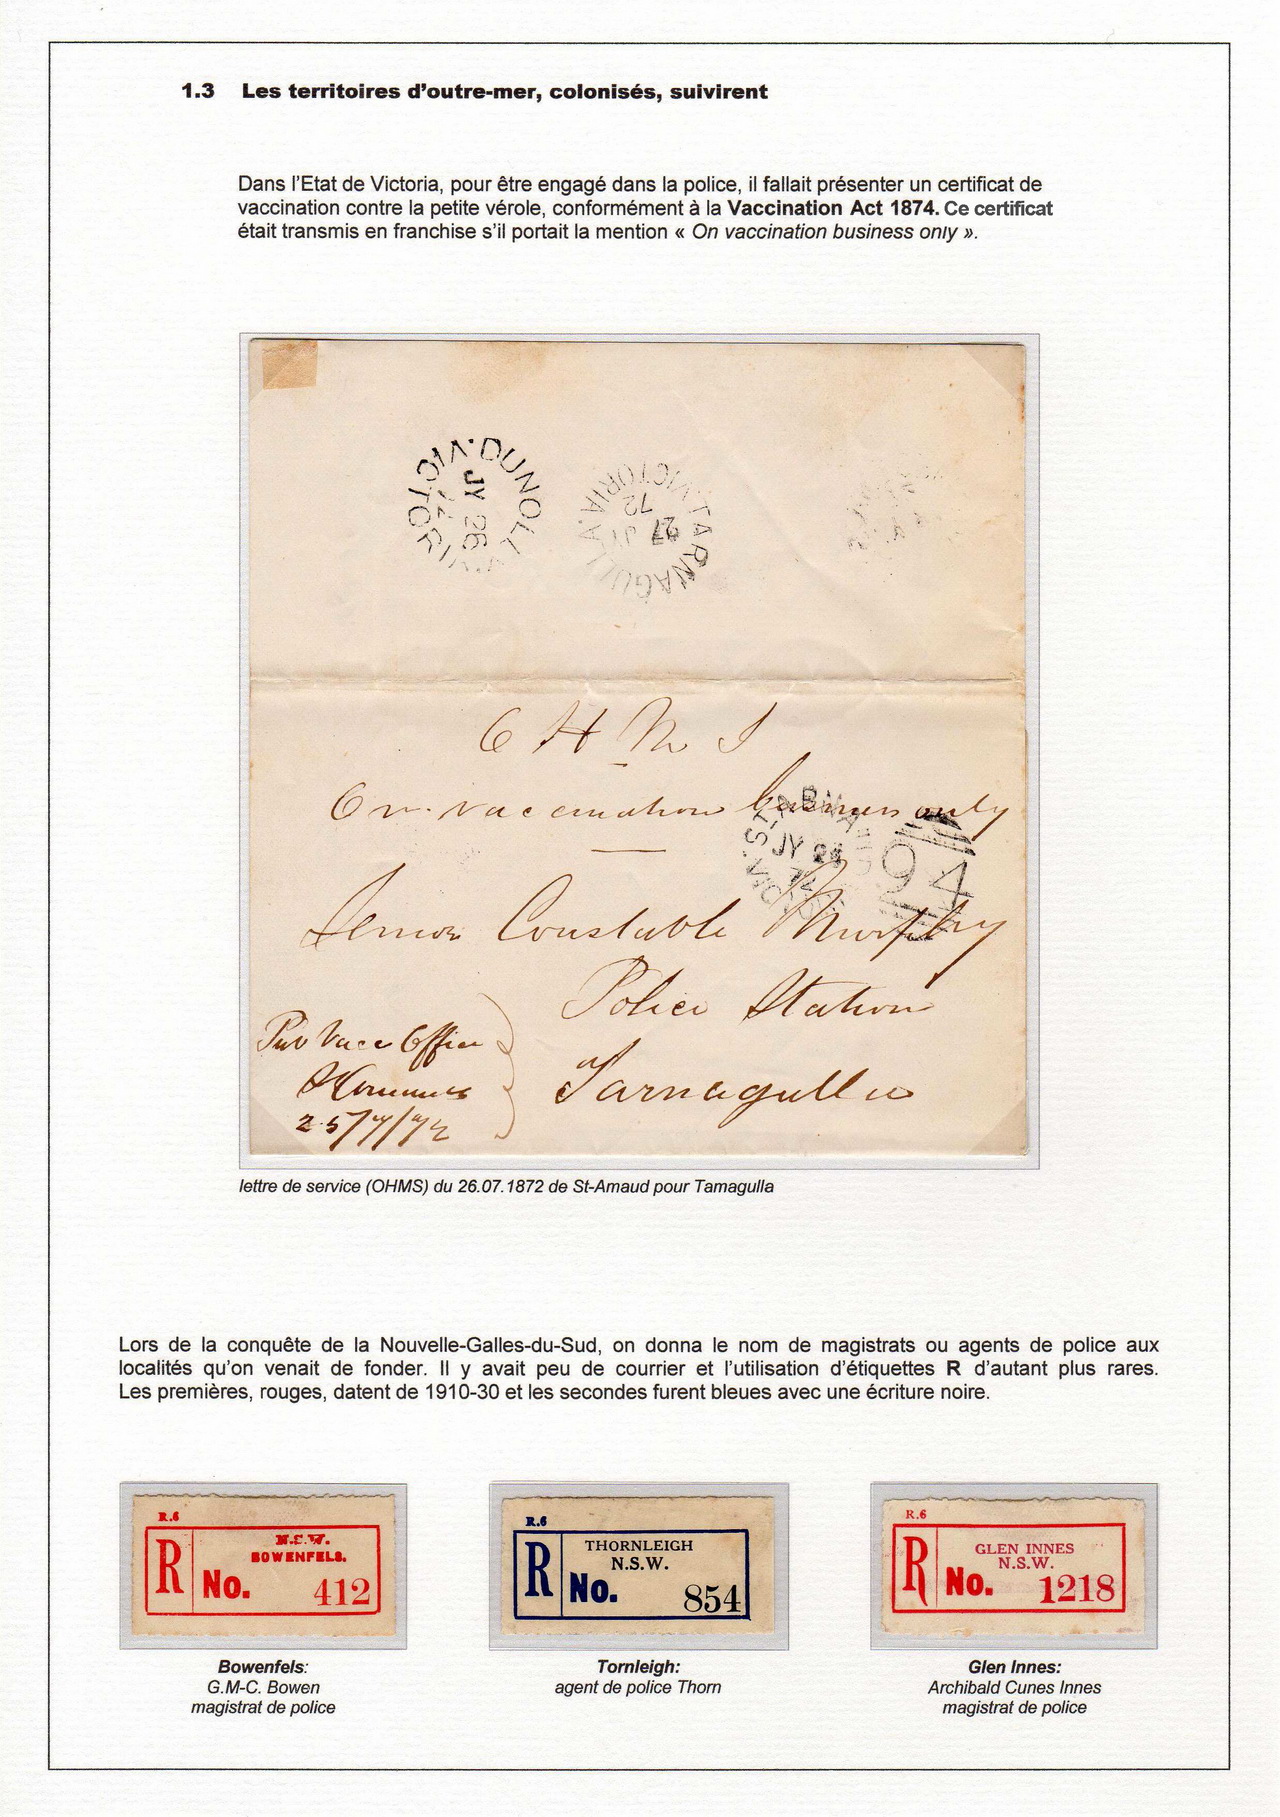 1.3 Les territoires d'outre-mer, colonisés, suivirent
Dans l'Etat de Victoria, pour être engagé dans la police, il fallait présenter un certificat de
vaccination contre la petite vérole, conformément à la Vaccination Act 1874. Ce certificat
était transmis en franchise s'il portait la mention « On vaccination business only ».
DUNOLLY
VICTORIA
JY 26
72
TARNAGULLA
VICTORIA
27 JY
72
O H M S
On vaccination business only
ST ARNAUD
VICTORIA
JY
72
94
Senior Constable Murphy
Police Station
Tarnagulla
Pub Vacc Officer
25/7/72
lettre de service (OHMS) du 26.07.1872 de St-Arnaud pour Tarnagulla
Lors de la conquête de la Nouvelle-Galles-du-Sud, on donna le nom de magistrats ou agents de police aux
localités qu'on venait de fonder. Il y avait peu de courrier et l'utilisation d'étiquettes R d'autant plus rares.
Les premières, rouges, datent de 1910-30 et les secondes furent bleues avec une écriture noire.
R.6
R
N.S.W.
BOWENFELS.
No. 412
R.6
R
THORNLEIGH
N.S.W.
No. 854
R.6
R
GLEN INNES
N.S.W.
No. 1218
Bowenfels:
G.M-C. Bowen
magistrat de police
Tornleigh:
agent de police Thorn
Glen Innes:
Archibald Cunes Innes
magistrat de police